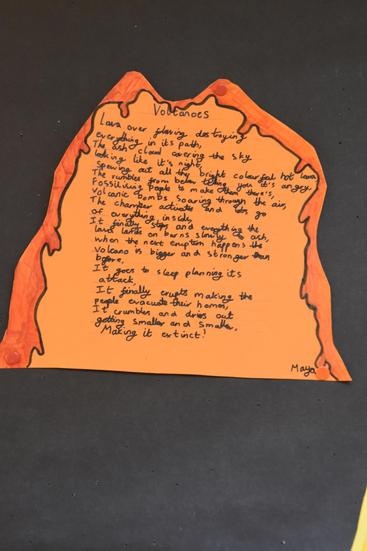 Volcanoes
Lava over flowing destroying
everything in its path,
The ash cloud covering the sky
looking like it's night,
Spewing out all the bright colourful hot lava
The rumbles from below telling you it's angry,
Fossilising people to make them there's,
Volcanic bombs soaring through the air,
The chamber activates and lets go
of everything inside,
It finally stops and everything the
lava lands on burns slowly to ash,
when the next eruption happens the
volcano is bigger and stronger than
before,
It goes to sleep planning its
attack,
It finally erupts making the
people evacuate their homes,
It crumbles and dries out
getting smaller and smaller,
Making it extinct!
Maya